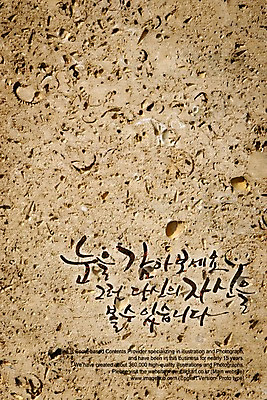 눈을 감아보세요
그럼 당신의 자신을
볼 수 있습니다
Contents Provider specializing in illustration and Photograph,
and have been in this Business for nearly 15 years.
We have created about 360,000 high-quality illustrations and Photographs.